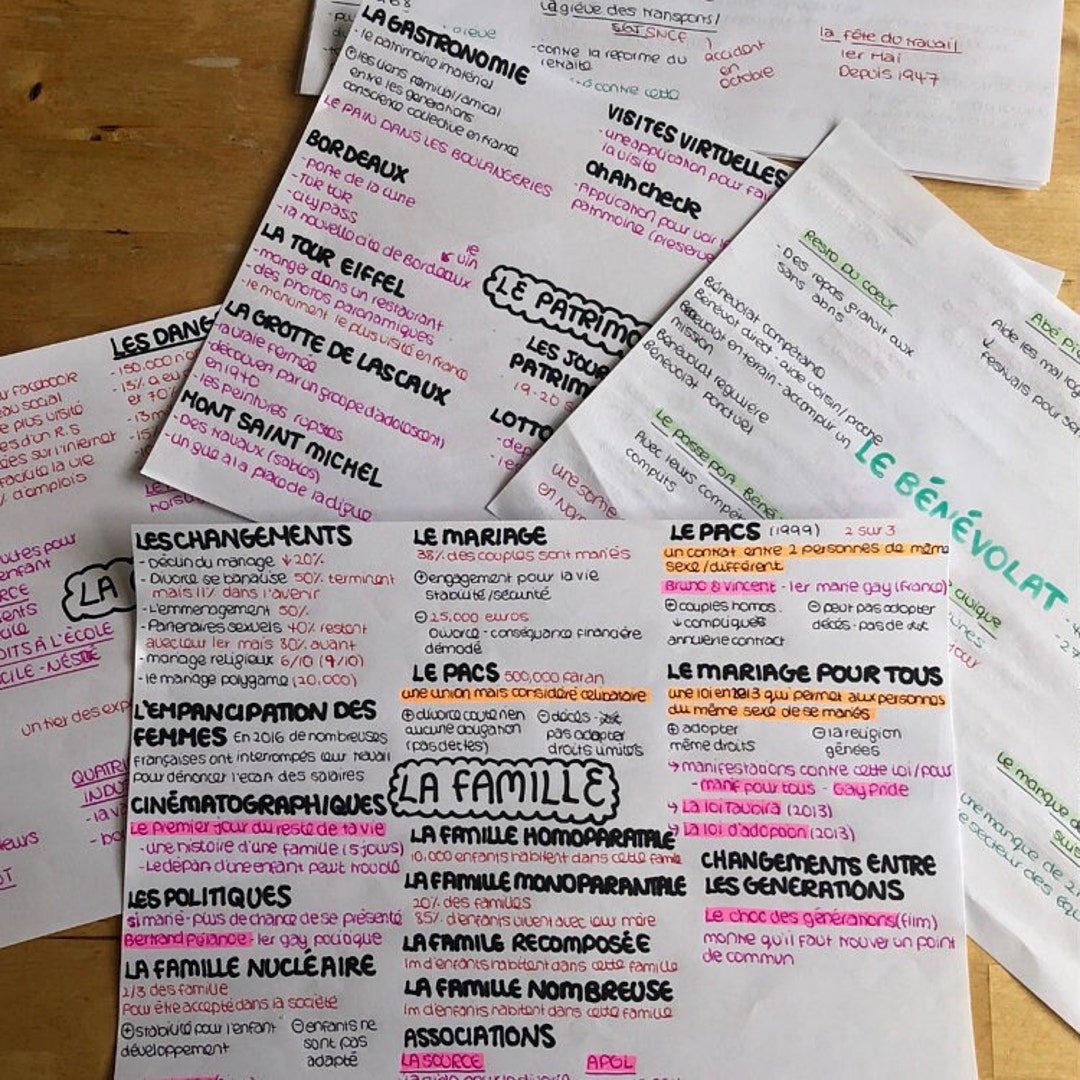 la grève des transports/
SGT SNCF
-contre la reforme du
retraite
accident
en
octobre
contre cette
la fête du travail
1er Mai
Depuis 1947
LA GASTRONOMIE
-le patrimoine imatériel
⊕les liens familial/amical
entre les generations
conscience collective en france
LE PAIN DANS LES BOULANGERIES
BORDEAUX
-porte de la lune
-TukTuk
-citypass
-la nouvello cité de Bordeaux
le
vin
LA TOUR EIFFEL
-manger dans un restaurant
-des photos paronamiques
-le monument le plus visité en france
LA GROTTE DE LASCAUX
-la vraie fermée
-découvert par un groupe d'adoloscent)
en 1940
-les peintures rupstes
MONT SAINT MICHEL
-Des travaux (sables)
-un gué a la place de la digue
VISITES VIRTUELLES
-une application pour fai
la visite
OhAhCheck
-Application pour voir l
patrimoine (preserve
LE PATRIMO
LES JOU
PATRIM
19-20 S
LOTTO
-dep
-le
RESTO DU COEUR
-Des repas gratuit aux
sans abris
Abé Pi
Aide les mal log
festivals pour se
Bénévolat compétance
Bénévol direct-aide voisin/proche
Bénévolat en terrain-accomplir un
mission
Bénévolat reguliere
Bénévolat Ponctuel
LE BÉNÉVOLAT
Le passe port Béné
Avec leurs compét
computs
une somme
en Nor
civique
Le manque de
LES DANG
-150,000
-15%
er 70
-13m
ur facebook
eau social
e plus visité
es d'un R.S
ées sur l'internet
facilite la vie
% d'emplois
LA
un tier des exp
LES CHANGEMENTS
-Déclin du mariage ↓20%
-Divorce se banalise 50% terminent
mais 11% dans l'avenir
-L'emmenagement 50%
-Partenaires sexuels 40% restent
avec leur 1er mais 80% avant
-mariage religieux 6/10 (9/10)
-le mariage polygame (20,000)
L'EMPANCIPATION DES
FEMMES En 2016 de nombreuses
françaises ont interrompes leur travail
pour dénoncer l'ecart des salaires
CINÉMATOGRAPHIQUES
Le premier jour du reste de ta vie
-une histoire d'une famille (5 jours)
-Le départ d'une enfant peut troublé
LES POLITIQUES
si marié-plus de chance de se présenté
Bertrand Pelanoe-1er gay politique
LA FAMILLE NUCLÉAIRE
2/3 des famille
Pour être accepté dans la société
⊕stabilité pour l'enfant
développement
⊖enfants ne
sont pas
adapté
LE MARIAGE
38% des couples sont mariés
⊕engagement pour la vie
stabilité/sécurité
⊖25,000 euros
Divorce-conséquance financière
démodé
LE PACS 500,000 par an
une union mais considéré celibataire
⊕divorce coute rien
aucune obligation
(pas detles)
⊖décès-
pas adopter
droits limités
LA FAMILLE
LA FAMILLE HOMOPARATALE
10,000 enfants habitent dans cette famille
LA FAMILLE MONOPARANTALE
20% des familles
85% d'enfants vivent avec leur mère
LA FAMILLE RECOMPOSÉE
1m d'enfants habitent dans cette famille
LA FAMILLE NOMBREUSE
1m d'enfants habitent dans cette famille
ASSOCIATIONS
LA SOURCE
APGL
LE PACS (1999) 2 sur 3
un contrat entre 2 personnes de même
sexe/different
Bruno & vincent-1er marié gay (France)
⊕couples homos.
↓compliqués
annulerie contract
⊖peut pas adopter
décés-pas de
LE MARIAGE POUR TOUS
une loi en 2013 qui permet aux personnes
du même sexe de se mariés
⊕adopter
même droits
⊖la religion
génées
→manifestations contre cette loi/pour
-manif pour tous - Gay Pride
→La loi taubira (2013)
→La loi d'adopaon (2013)
CHANGEMENTS ENTRE
LES GENERATIONS
Le choc des générations (film)
montre qu'il faut trouver un point
de commun